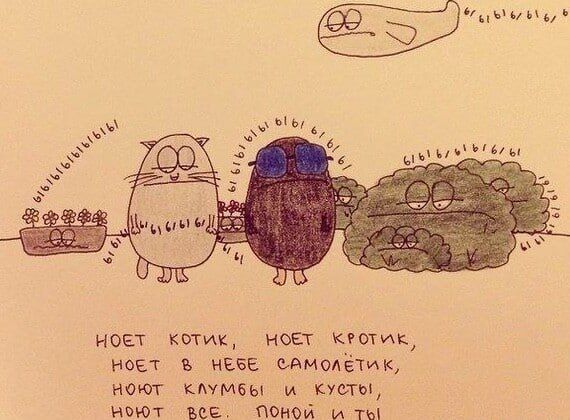 ы ы ы ы ы ы ы
ыыыыыыыы
ыыыыыыыыы
ы ы ы ы ы ы ы ы
ы ы ы ы ы
НОЕТ КОТИК, НОЕТ КРОТИК,
НОЕТ В НЕБЕ САМОЛЁТИК,
НОЮТ КЛУМБЫ И КУСТЫ,
НОЮТ ВСЕ. ПОНОЙ И ТЫ